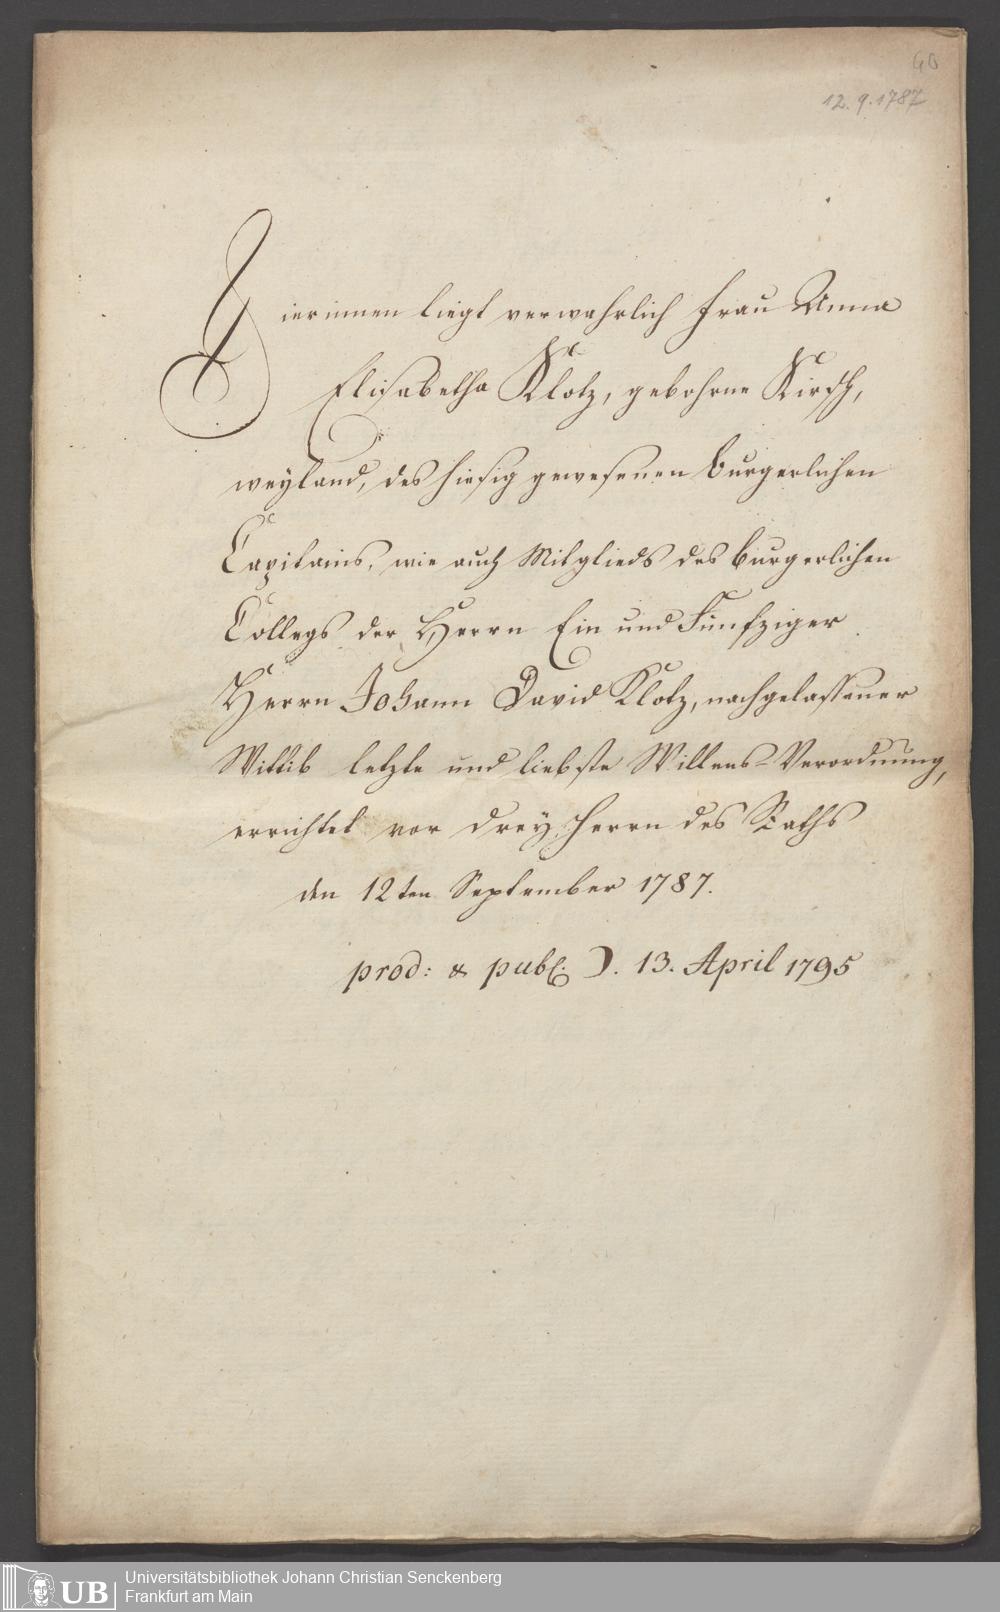 60
12.9.1787
Hierinnen liegt verwahrlich Frau Anna
Elisabetha Klotz, gebohrne Kirsch,
weyland, des hiesig gewesenen burgerlichen
Capitains, wie auch Mitglieds des burgerlichen
Collegs der Herrn Ein und Fünfziger
Herrn Johann David Klotz, nachgelassener
Wittib letzte und liebste Willens-Verordnung,
errichtet vor drey Herrn des Raths
den 12ten September 1787.
prod: & publ. D. 13. April 1795
UB Universitätsbibliothek Johann Christian Senckenberg
Frankfurt am Main